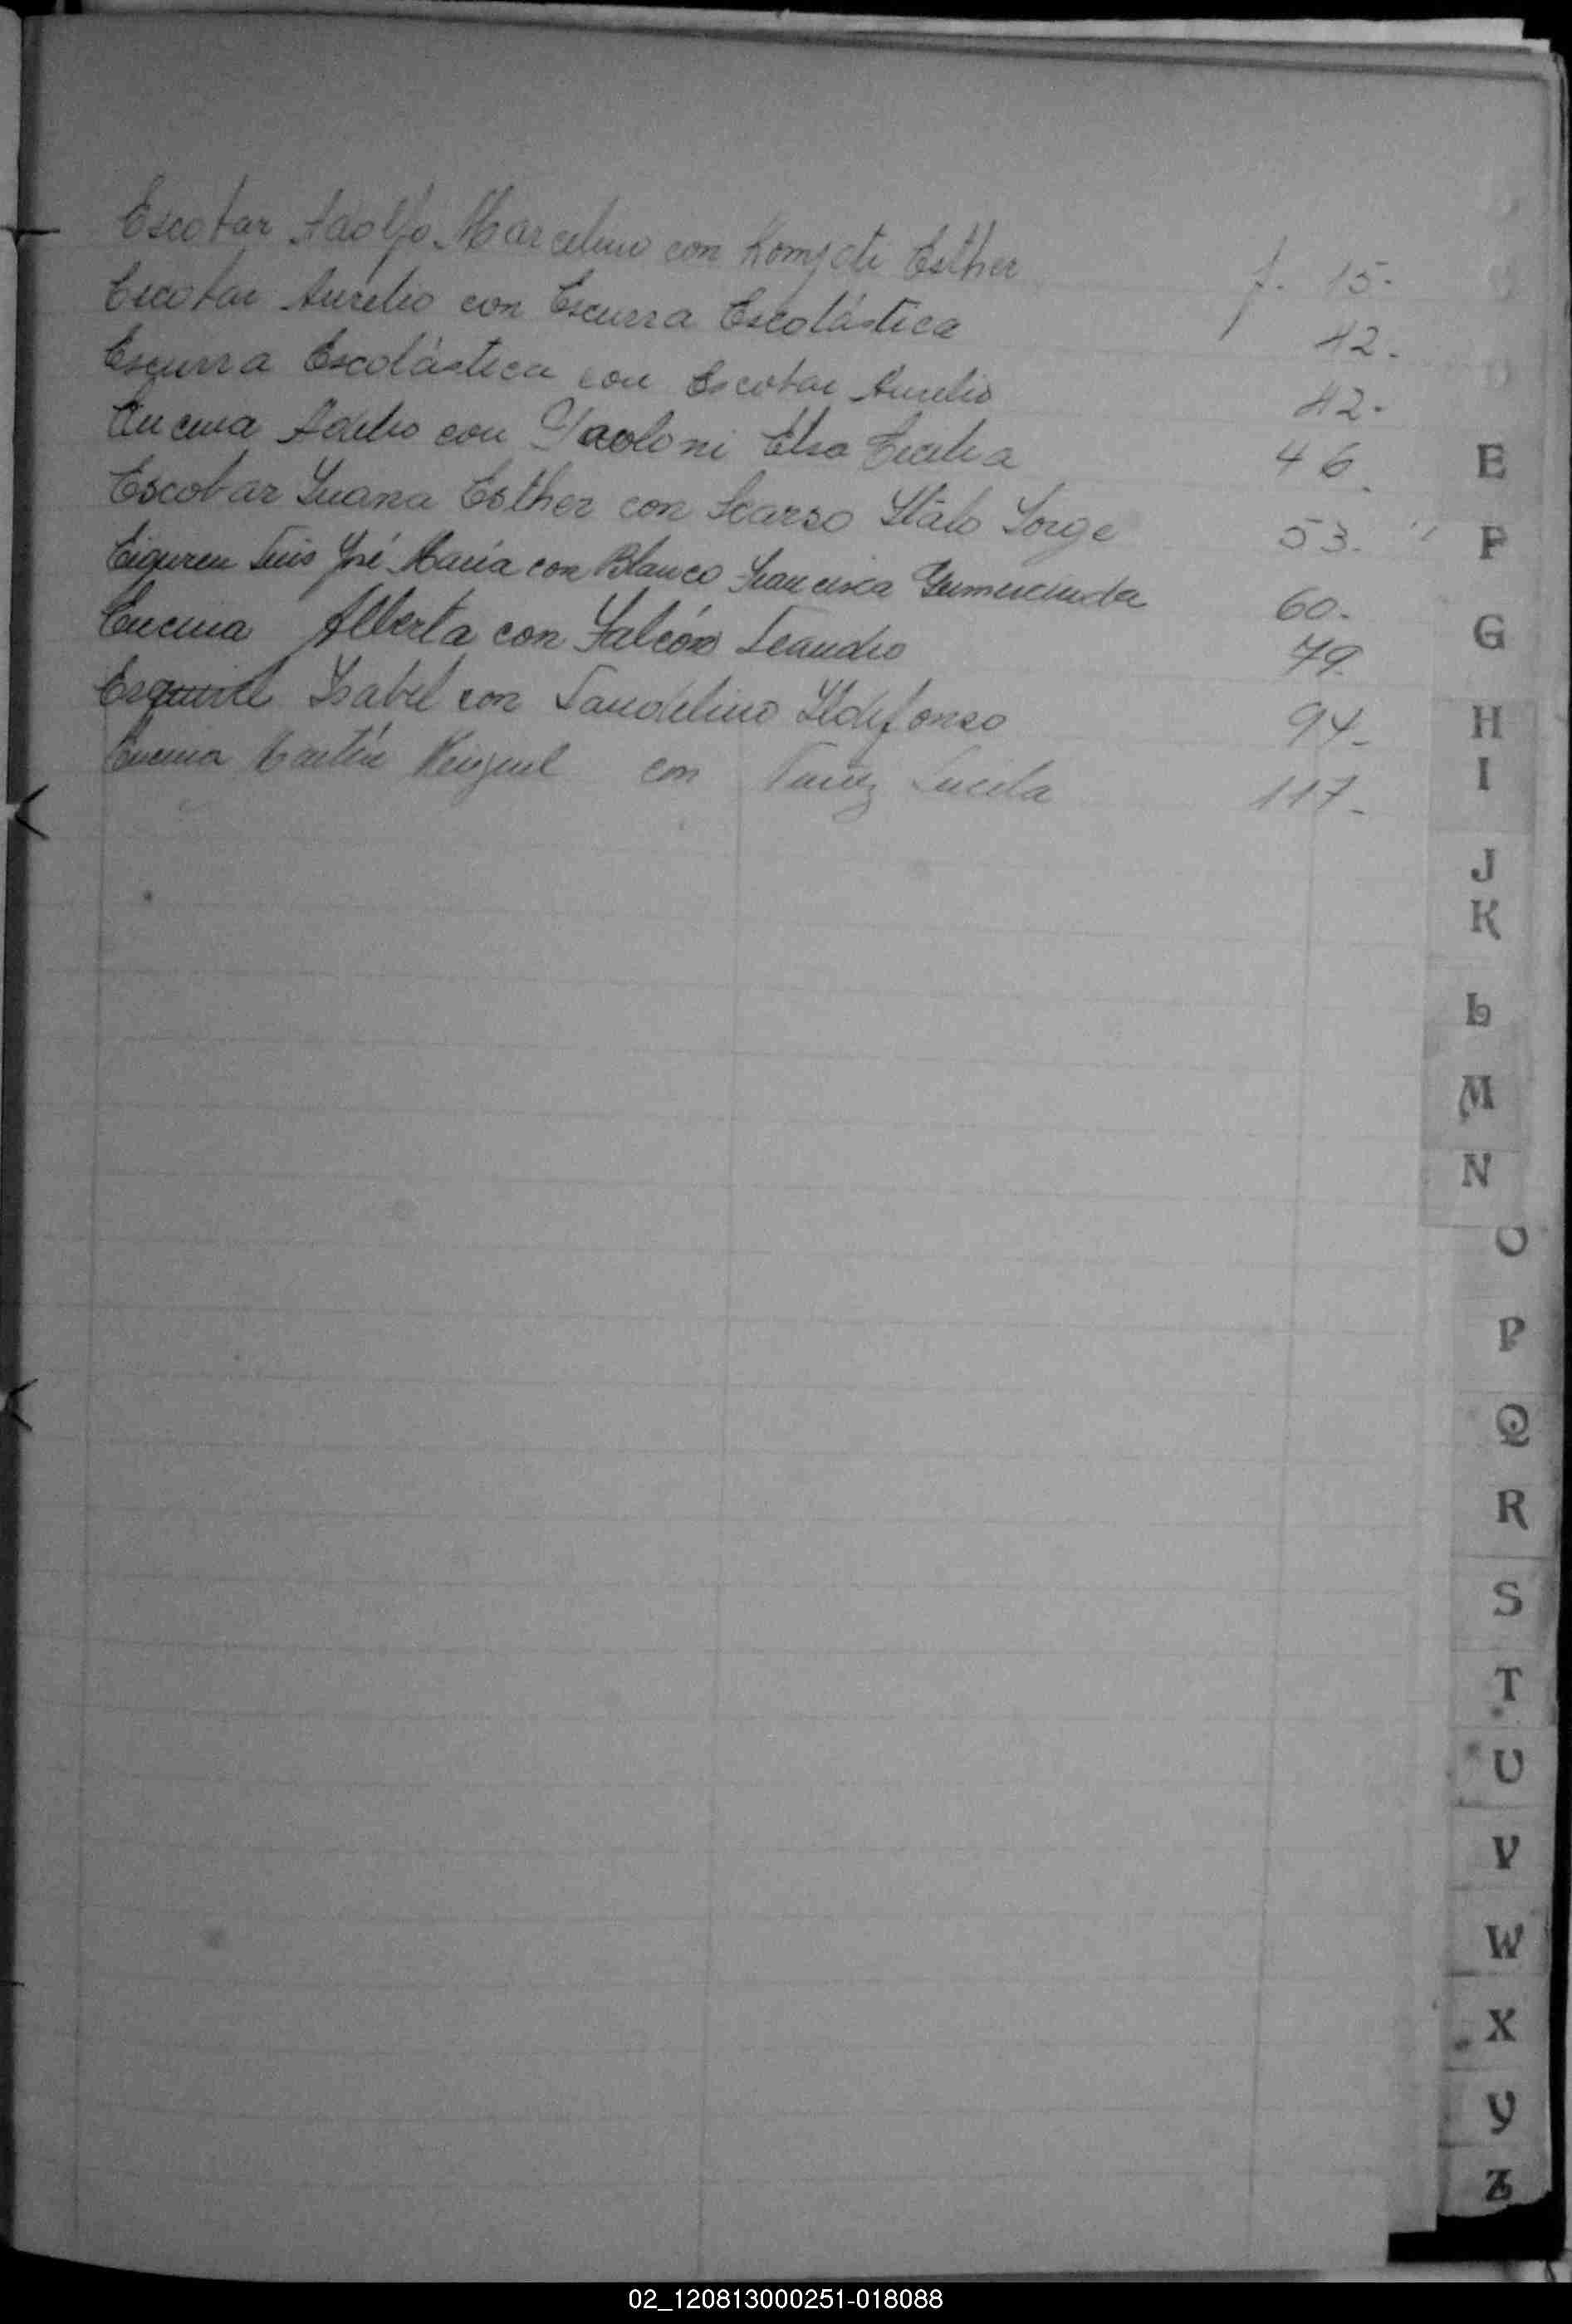 Escobar Adolfo Marcelino con Komjati Esther f. 15.
Escobar Aurelio con Escurra Escolástica 42.
Escurra Escolástica con Escobar Aurelio 42.
Encina Adelio con Paoloni Elsa Cecilia 46.
Escobar Juana Esther con Scarso Italo Jorge 53.
Eiguren Luis José María con Blanco Francisca Gumercinda 60.
Encina Alberta con Falcón Leandro 79.
Esquivel Isabel con Laudelino Ildefonso 94.
Encina Martín con Lucila 117.
E
F
G
H
I
J
K
L
M
N
O
P
Q
R
S
T
U
V
W
X
Y
Z
02_120813000251-018088